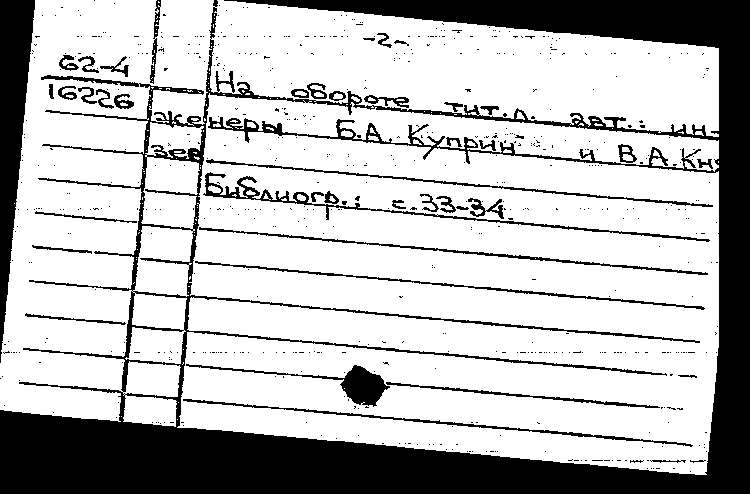 -2-
62-4
16226
На обороте тит.л. авт.: ин-
женеры Б.А. Куприн и В.А.Кня
зев.
Библиогр.: с.33-34.